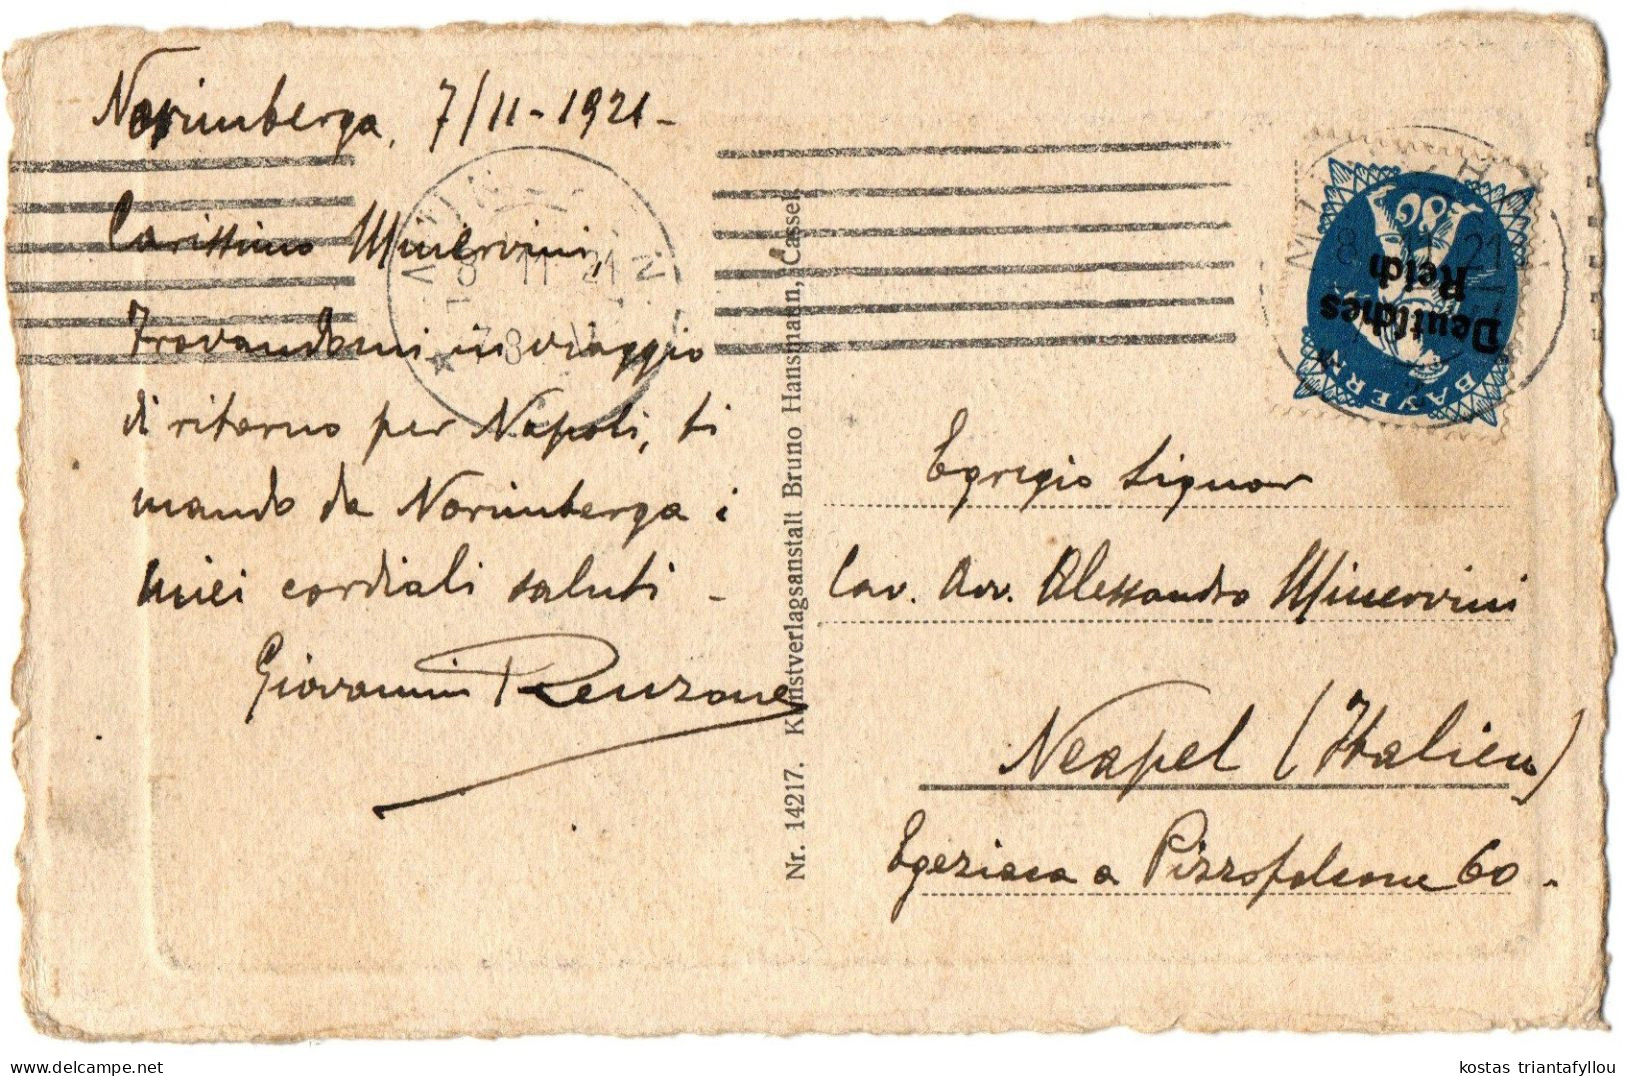 Norimberga, 7/11-1921-
Carissimo Minervini,
Trovandomi in viaggio
di ritorno per Napoli, ti
mando da Norimberga i
miei cordiali saluti -
Giovanni Renzone
Nr. 14217. Kunstverlagsanstalt Bruno Hansmann, Cassel.
8 11 21
7-8
80
Deutsches
Reich
BAYERN
8 11 21
Egregio Signor
Cav. Avv. Alessandro Minervini
Neapel (Italien)
Egeziaca a Pizzofalcone 60-
kostas triantafyllou